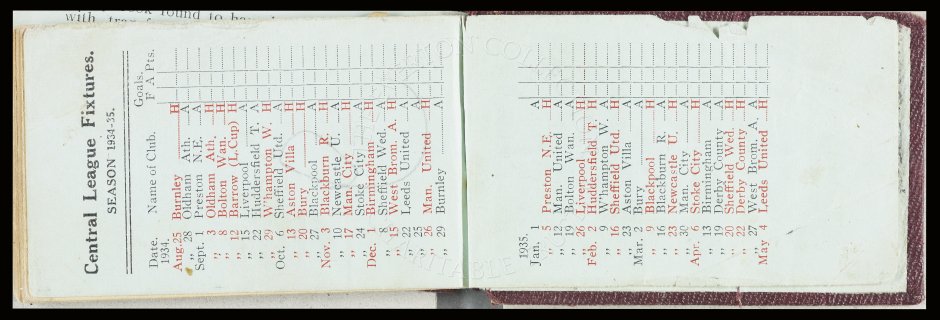 Central League Fixtures.
SEASON 1934-35.
Goals.
Date. Name of Club. F A Pts.
1934.
Aug. 25 Burnley H
,, 28 Oldham Ath. A
Sept. 1 Preston N.E. A
,, 3 Oldham Ath. H
,, 8 Bolton Wan. H
,, 12 Barrow (L.Cup) H
,, 15 Liverpool A
,, 22 Huddersfield T. A
,, 29 W'hampton W. H
Oct. 6 Sheffield Utd. A
,, 13 Aston Villa H
,, 20 Bury H
,, 27 Blackpool A
Nov. 3 Blackburn R. H
,, 10 Newcastle U. A
,, 17 Man. City H
,, 24 Stoke City A
Dec. 1 Birmingham H
,, 8 Sheffield Wed. A
,, 15 West Brom. A. H
,, 22 Leeds United A
,, 25 A
,, 26 Man. United H
,, 29 Burnley A
1935.
Jan. 1 A
,, 5 Preston N.E. H
,, 12 Man. United A
,, 19 Bolton Wan. A
,, 26 Liverpool H
Feb. 2 Huddersfield T. H
,, 9 W'hampton W A
,, 16 Sheffield Utd. H
,, 23 Aston Villa A
Mar. 2 Bury A
,, 9 Blackpool H
,, 16 Blackburn R. A
,, 23 Newcastle U. H
,, 30 Man. City A
Apr. 6 Stoke City H
,, 13 Birmingham A
,, 19 Derby County A
,, 20 Sheffield Wed. H
,, 22 Derby County H
,, 27 West Brom. A. A
May 4 Leeds United H